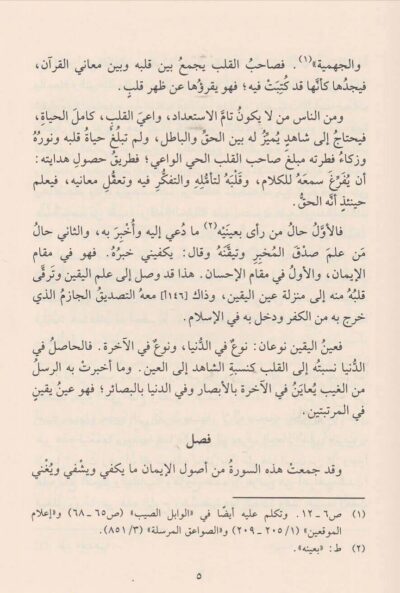 والجهمية»(١). فصاحبُ القلب يجمعُ بين قلبه وبين معاني القرآن،
فيجدُها كأنَّها قد كُتِبَتْ فيه؛ فهو يقرؤُها عن ظهر قلبٍ.
ومن الناس من لا يكونُ تامَّ الاستعداد، واعيَ القلبِ، كاملَ الحياةِ،
فيحتاجُ إلى شاهدٍ يُميِّزُ له بين الحقِّ والباطل، ولم تبلُغْ حياةُ قلبه ونورُهُ
وزكاءُ فطرته مبلغَ صاحب القلب الحي الواعي؛ فطريقُ حصولِ هدايته:
أن يُفَرِّغَ سمعَهُ للكلام، وقَلْبَهُ لتأمُّلِهِ والتفكُّرِ فيه وتعقُّلِ معانيه، فيعلم
حينئذٍ أنَّه الحقُّ.
فالأوَّلُ حالُ من رأى بعينَيْه(٢) ما دُعي إليه وأُخْبِرَ به، والثاني حالُ
مَن علمَ صدْقَ المُخبِرِ وتيقَّنَهُ وقال: يكفيني خبرُهُ. فهو في مقام
الإيمان، والأولُ في مقام الإحسان. هذا قد وصل إلى علم اليقين وتَرقَّى
قلبُهُ منه إلى منزلة عين اليقين، وذاك [١٤٦أ] معه التصديقُ الجازمُ الذي
خرج به من الكفر ودخل به في الإسلام.
فعينُ اليقين نوعان: نوعٌ في الدُّنيا، ونوعٌ في الآخرة. فالحاصلُ في
الدُّنيا نسبتُه إلى القلب كنسبةِ الشاهد إلى العين. وما أخبرتْ به الرسلُ
من الغيب يُعايَنُ في الآخرة بالأبصار وفي الدنيا بالبصائر؛ فهو عينُ يقينٍ
في المرتبتين.
فصل
وقد جمعتْ هذه السورةُ من أصول الإيمان ما يكفي ويشْفي ويُغْني
(١) ص٦ـ١٢. وتكلم عليه أيضًا في «الوابل الصيب» (ص٦٥ـ٦٨) و«إعلام
الموقعين» (١/ ٢٠٥ـ٢٠٩) و«الصواعق المرسلة» (٣/ ٨٥١).
(٢) ط: «بعينه».
٥